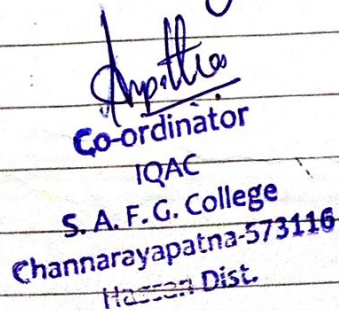 Co-ordinator
IQAC
S. A. F. G. College
Channarayapatna-573116
Hassan Dist.